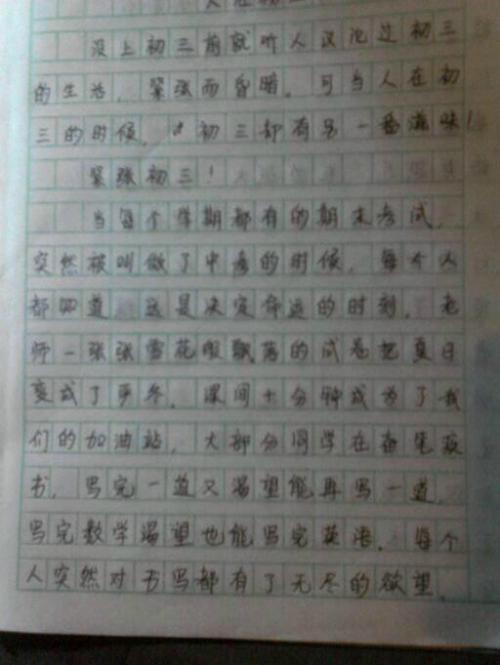 没上初三前就听人谈论过初三
的生活，紧张而昏暗。可当人在初
三的时候，初三都有另一番滋味！
紧张初三！
当每个学期都有的期末考试，
突然被叫做了中考的时候，每个人
都知道，这是决定命运的时刻。老
师一张张雪花般飘落的试卷把夏日
变成了严冬。课间十分钟成为了我
们的加油站，大部分同学在奋笔疾
书，写完一道又渴望能再写一道，
写完数学渴望也能写完英语。每个
人突然对书写都有了无尽的欲望，